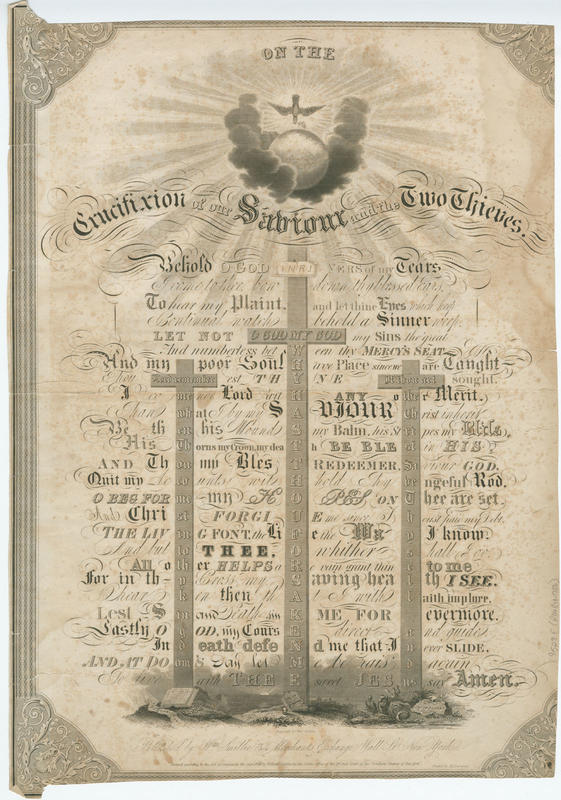 ON THE
Crucifixion of our Saviour and the Two Thieves.
Behold O GOD INRI VERS of my Tears
I come to thee, bow down thy blessed Ears,
To hear my Plaint, and let thine Eyes which keep
Continual watch behold a Sinner weep.
LET NOT O GOD MY GOD my Sins tho great
And numberless bet W een thy MERCY'S SEAT
And my poor Soul H ave Place since we are Taught
Thou Lord remember est TH I NE If thou art sought.
I co me not Lord wit H ANY o the r Merit.
Than wh at I by my S A VIOUR Ch rist inherit
Be th en his Wounds my Balm, his St ri pes my Bliss,
His Th orns my Crown, my dea t h BE BLE st in HIS.
AND Th ou my Bles t REDEEMER, Sa viour GOD,
Quit my Ac counts with hold thy Ve ngeful Rod.
O BEG FOR me my H O PES ON T hee are set.
And Chri st FORGI V E me since I my Debt,
THE LIV in G FONT, the Li F e the Wa y I know.
And but to THEE, O whither s hall I go
All o th er HELPS a R e vain grant thin e to me
For in th y Cross my S aving hea l th I SEE.
hear k en then th A t I with f aith implore,
Lest S in and Death sin K ME FOR evermore.
Lastly O G OD, my Cours E direct a nd guide,
In D eath defe N d me that I n ever SLIDE.
AND AT DO om S Day let M e be rais d again
To live with THE E sweet JES us say Amen.
Published by Wm. Smith Merchants Exchange Wall St. New York